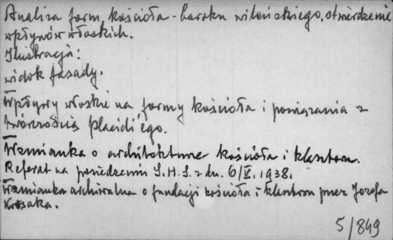 Analiza form kościoła - baroku wileńskiego, stwierdzenie
wpływów włoskich.
Ilustracja:
widok fasady.
Wpływy włoskie na formy kościoła i powiązania z
twórczością Placidi'ego.
Wzmianka o architekturze kościoła i klasztoru.
Referat na posiedzeniu S.H.S. z dn. 6/V. 1938.
Wzmianka archiwalna o fundacji kościoła i klasztoru przez Józefa
Kossaka.
5/849